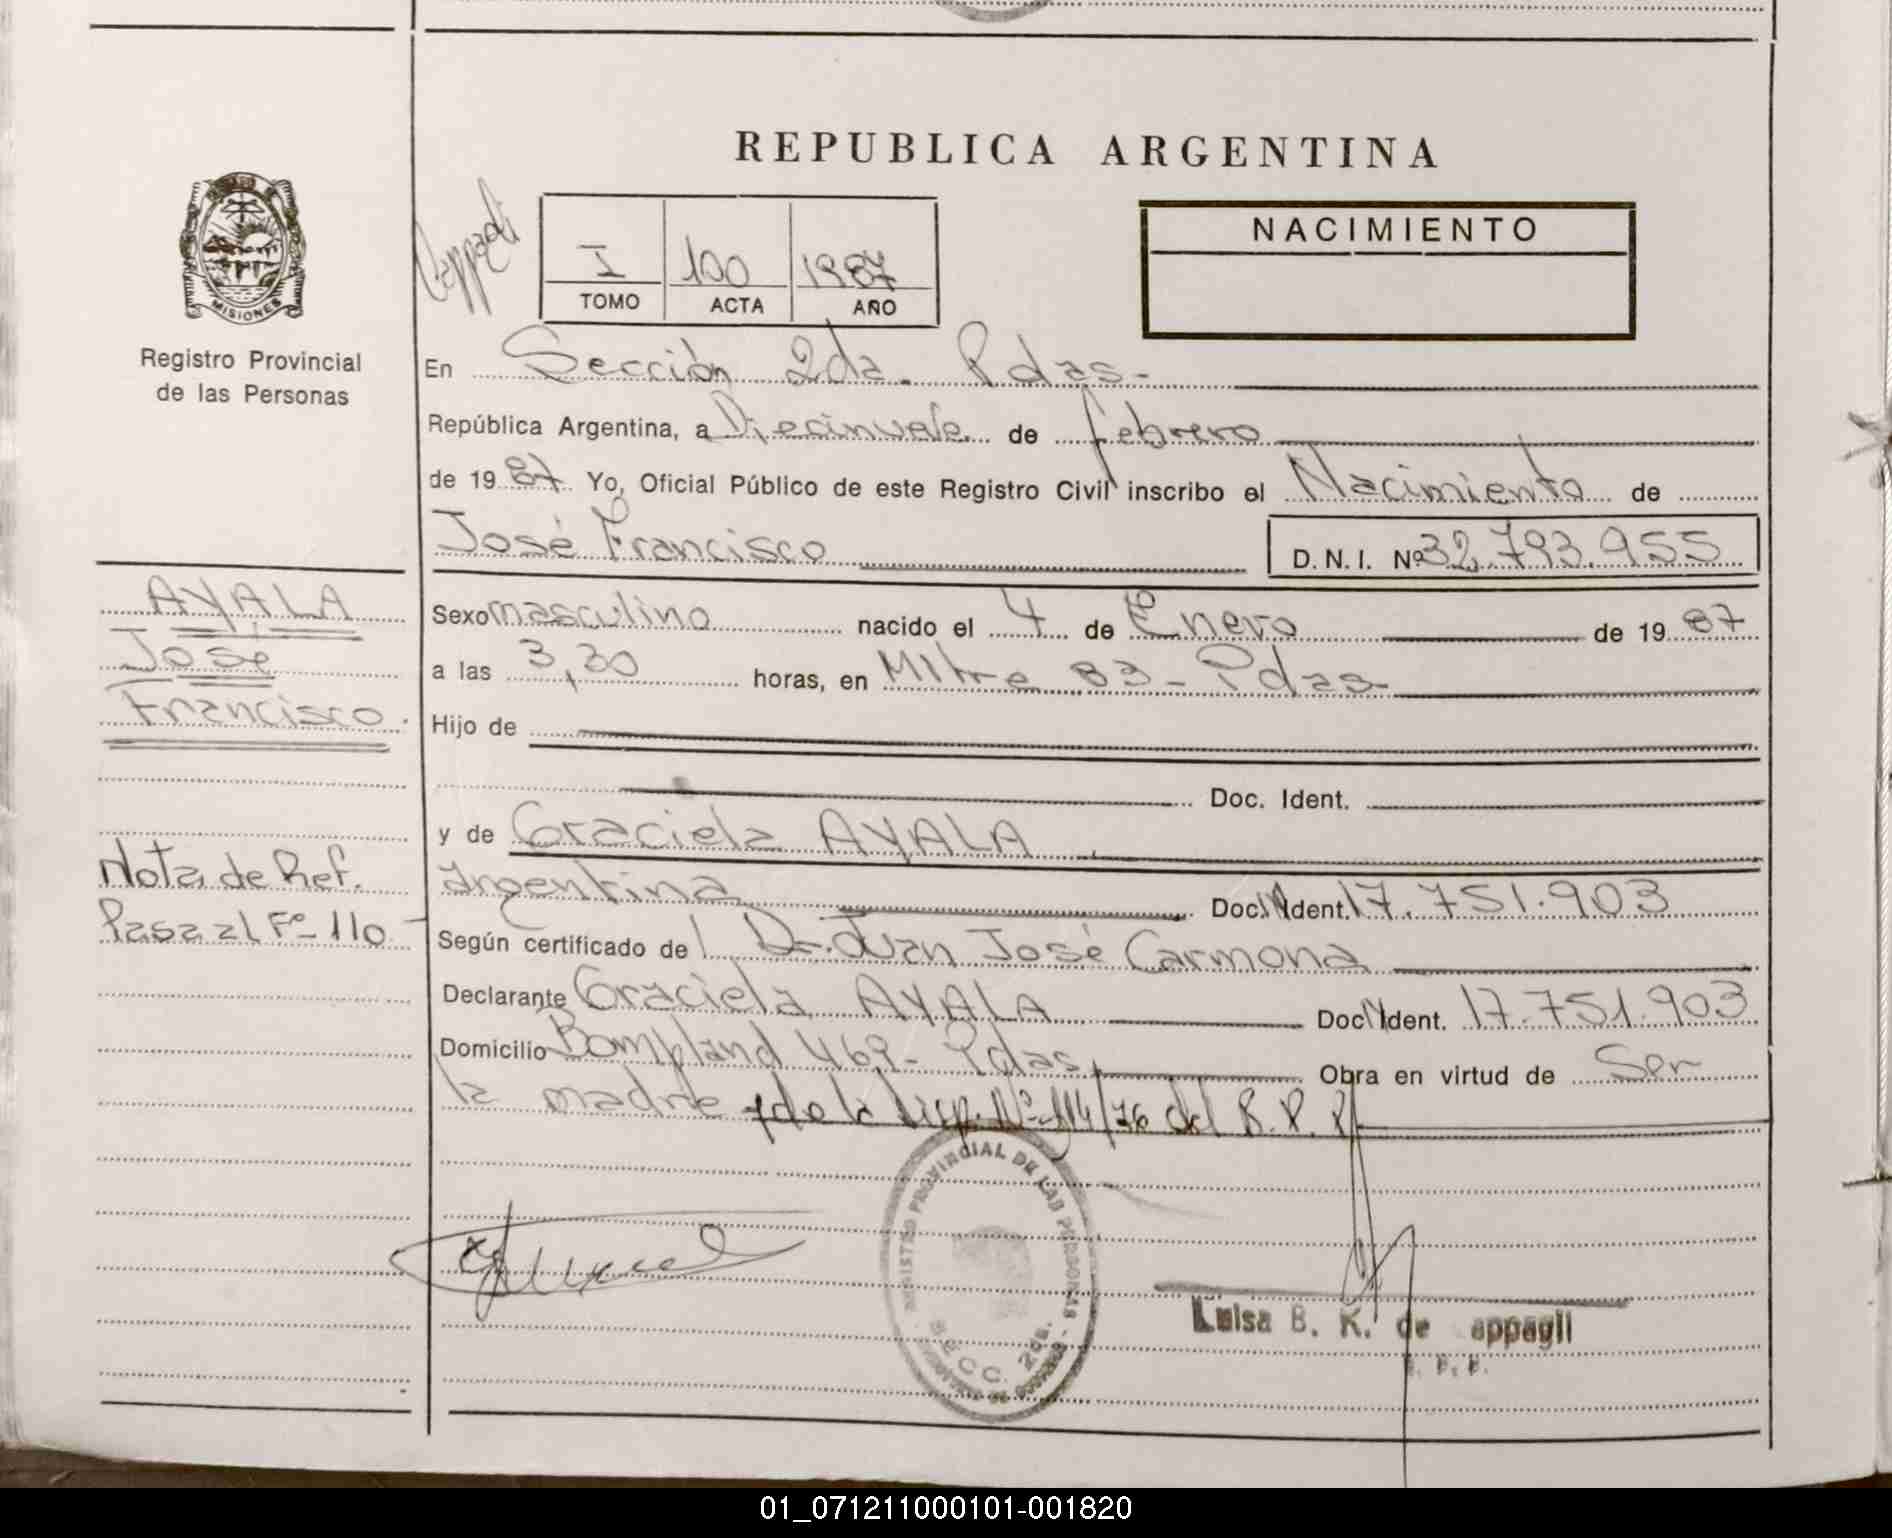 REPUBLICA ARGENTINA
NACIMIENTO
I 100 1987
TOMO ACTA AÑO
MISIONES
Registro Provincial
de las Personas
En Sección 2da. Pdas-
República Argentina, a Diecinueve de febrero
de 1987 Yo, Oficial Público de este Registro Civil inscribo el Nacimiento de
José Francisco D.N.I. Nº 32.793.955
AYALA
José
Francisco.
Sexo masculino nacido el 4 de Enero de 1987
a las 3,30 horas, en Mitre 83 - Pdas-
Hijo de
Doc. Ident.
y de Graciela AYALA
Nota de Ref.
Pasa al Fº- 110-
argentina Doc. Ident. 17.751.903
Según certificado de Dr. Juan José Carmona
Declarante Graciela AYALA Doc. Ident. 17.751.903
Domicilio Bompland 469- Pdas. Obra en virtud de Ser
la madre y de la Disp. Nº 114/76 del R. P. P.
REGISTRO PROVINCIAL DE LAS PERSONAS
SECC. 2da.
Luisa B. K. de appagli
01_071211000101-001820